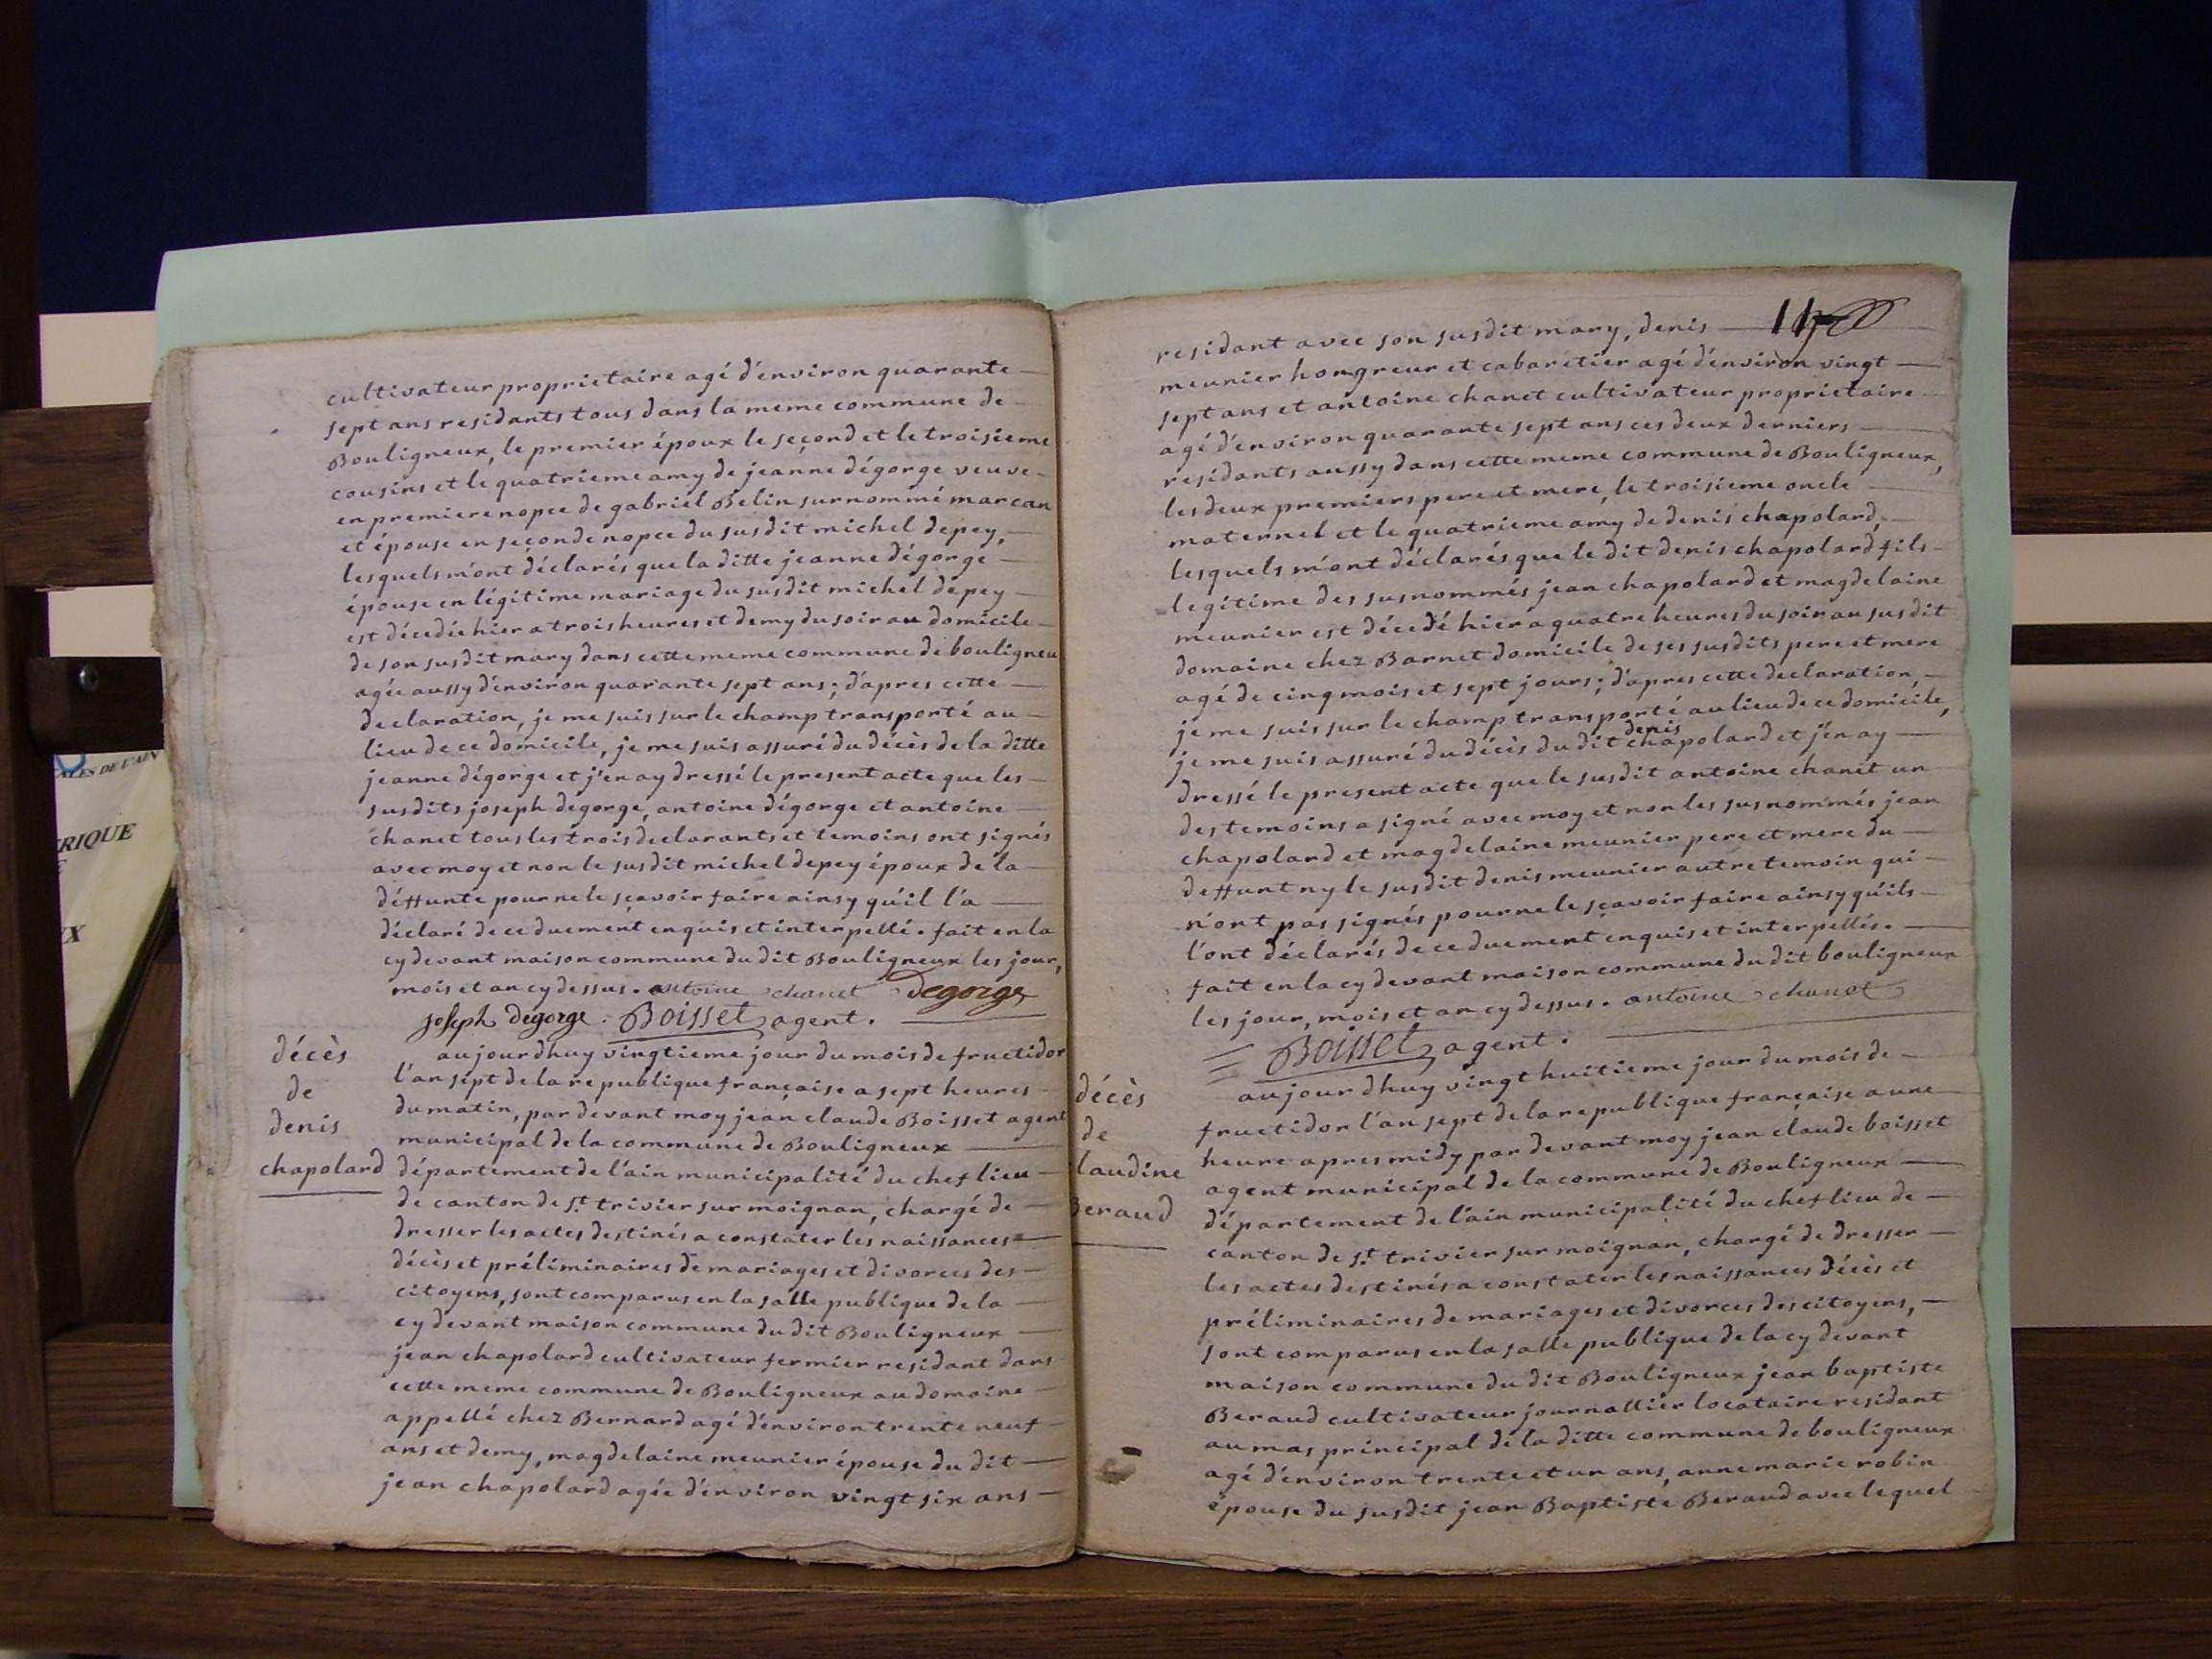 cultivateur proprietaire agé d'environ quarante
sept ans residants tous dans la meme commune de
Bouligneux, le premier époux le second et le troisieme
cousins et le quatrieme amy de jeanne dégorge veuve
en premiere nopce de gabriel Belin surnommé marcan
et épouse en seconde nopce du susdit michel depey,
lesquels m'ont déclarés que la ditte jeanne dégorge
épouse en légitime mariage du susdit michel depey
est décedée hier a trois heures et demy du soir au domicile
de son susdit mary dans cette meme commune de bouligneu
agée aussy d'environ quarante sept ans; d'apres cette
declaration, je me suis sur le champ transporté au
lieu de ce domicile, je me suis assuré du décès de la ditte
jeanne dégorge et j'en ay dressé le present acte que les
susdits joseph degorge, antoine dégorge et antoine
chanet tous les trois declarants et temoins ont signés
avec moy et non le susdit michel depey époux de la
déffunte pour ne le sçavoir faire ainsy qu'il l'a
déclaré de ce duement enquis et interpellé. fait en la
cy devant maison commune du dit Bouligneux les jour,
mois et an cy dessus. antoine chanet Degorge
joseph degorge. Boisset agent.
décès
de
denis
chapolard
aujourdhuy vingtieme jour du mois de fructidor
l'an sept de la republique française a sept heures
du matin, par devant moy jean claude Boisset agent
municipal de la commune de Bouligneux
département de l'ain municipalité du chef lieu
de canton de st. trivier sur moignan, chargé de
dresser les actes destinés a constater les naissances
décès et préliminaires de mariages et divorces des
citoyens, sont comparus en la salle publique de la
cy devant maison commune du dit Bouligneux
jean chapolard cultivateur fermier residant dans
cette meme commune de Bouligneux au domaine
appellé chez Bernard agé d'environ trente neuf
ans et demy, magdelaine meunier épouse du dit
jean chapolard agée d'environ vingt six ans
residant avec son susdit mary, denis
meunier hongreur et cabaretier agé d'environ vingt
sept ans et antoine chanet cultivateur proprietaire
agé d'environ quarante sept ans ces deux derniers
residants aussy dans cette meme commune de Bouligneux,
les deux premiers pere et mere, le troisieme oncle
maternel et le quatrieme amy de denis chapolard,
lesquels m'ont déclarés que le dit denis chapolard fils
legitime des susnommés jean chapolard et magdelaine
meunier est décedé hier a quatre heures du soir au susdit
domaine chez Barnet domicile de ses susdits pere et mere
agé de cinq mois et sept jours; d'apres cette declaration,
je me suis sur le champ transporté au lieu de ce domicile,
je me suis assuré du décès du dit denis chapolard et j'en ay
dressé le present acte que le susdit antoine chanet un
des temoins a signé avec moy et non les susnommés jean
chapolard et magdelaine meunier pere et mere du
deffunt ny le susdit denis meunier autre temoin qui
n'ont pas signés pour ne le sçavoir faire ainsy qu'ils
l'ont déclarés de ce duement enquis et interpellés.
fait en la cy devant maison commune du dit bouligneux
les jour, mois et an cy dessus. antoine chanet
Boisset agent.
décès
de
laudine
Beraud
aujourdhuy vingt huitieme jour du mois de
fructidor l'an sept de la republique française a une
heure apres midy par devant moy jean claude boisset
agent municipal de la commune de Bouligneux
département de l'ain municipalité du chef lieu de
canton de st. trivier sur moignan, chargé de dresser
les actes destinés a constater les naissances décès et
préliminaires de mariages et divorces des citoyens,
sont comparus en la salle publique de la cy devant
maison commune du dit Bouligneux jean baptiste
Beraud cultivateur journallier locataire residant
au mas principal de la ditte commune de bouligneux
agé d'environ trente et un ans, anne marie robin
epouse du susdit jean Baptiste Beraud avec lequel
ALES DE L'AIN
RIQUE
X